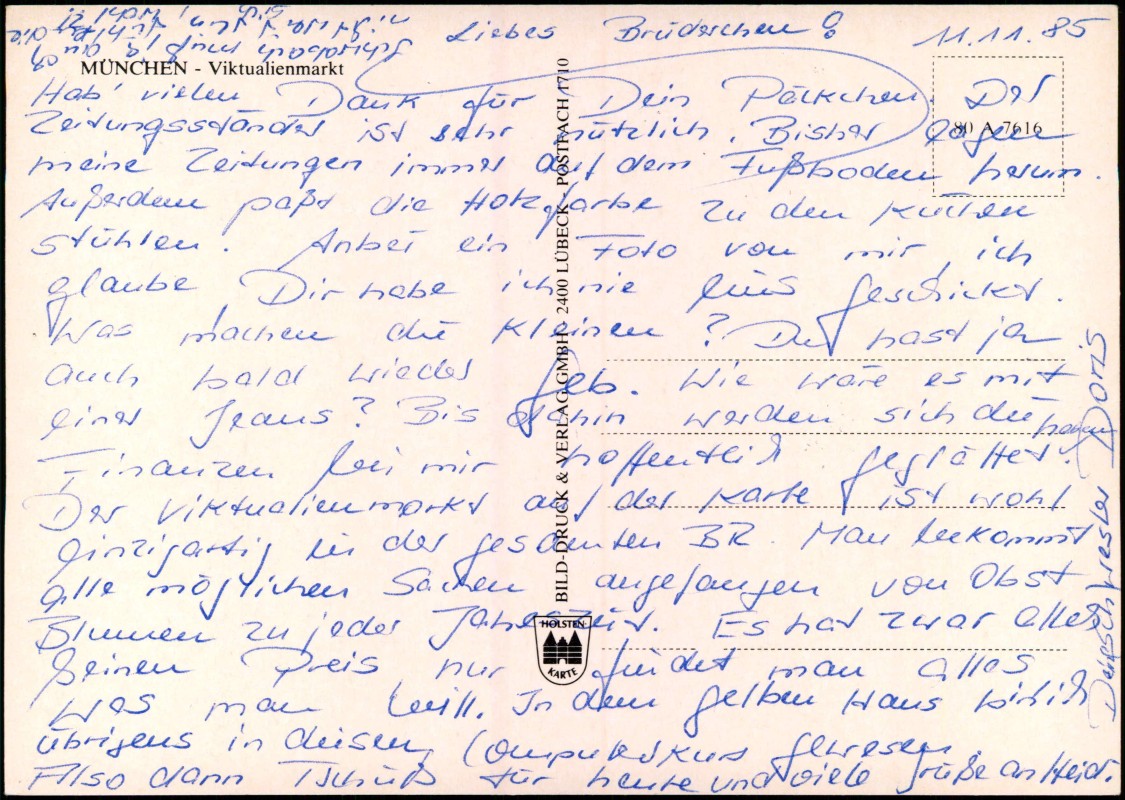 Liebes Brüderchen! 11.11.85
MÜNCHEN - Viktualienmarkt
80 A 7616
Hab' vielen Dank für Dein Päckchen. Der
Zeitungsständer ist sehr nützlich. Bisher lagen
meine Zeitungen immer auf dem Fußboden herum.
Außerdem paßt die Holzfarbe zu den Küchen
stühlen. Anbei ein Foto von mir, ich
glaube Dir habe ich nie eins geschickt.
Was machen die Kleinen? Du hast ja
auch bald wieder Geb. Wie wäre es mit
einer Jeans? Bis dahin werden sich die
Finanzen bei mir hoffentlich geglättet haben.
Der Viktualienmarkt auf der Karte ist wohl
einzigartig in der gesamten BR. Man bekommt
alle möglichen Sachen angefangen von Obst
Blumen zu jeder Jahreszeit. Es hat zwar alles
seinen Preis nur findet man alles
was man will. In dem gelben Haus bin ich
übrigens in diesem Computerkurs gewesen.
Also dann Tschüß für heute und viele Grüße an Heid.
Dein Schwester Doris
BILD-DRUCK & VERLAG GMBH · 2400 LÜBECK · POSTFACH 1710
HOLSTEN
KARTE